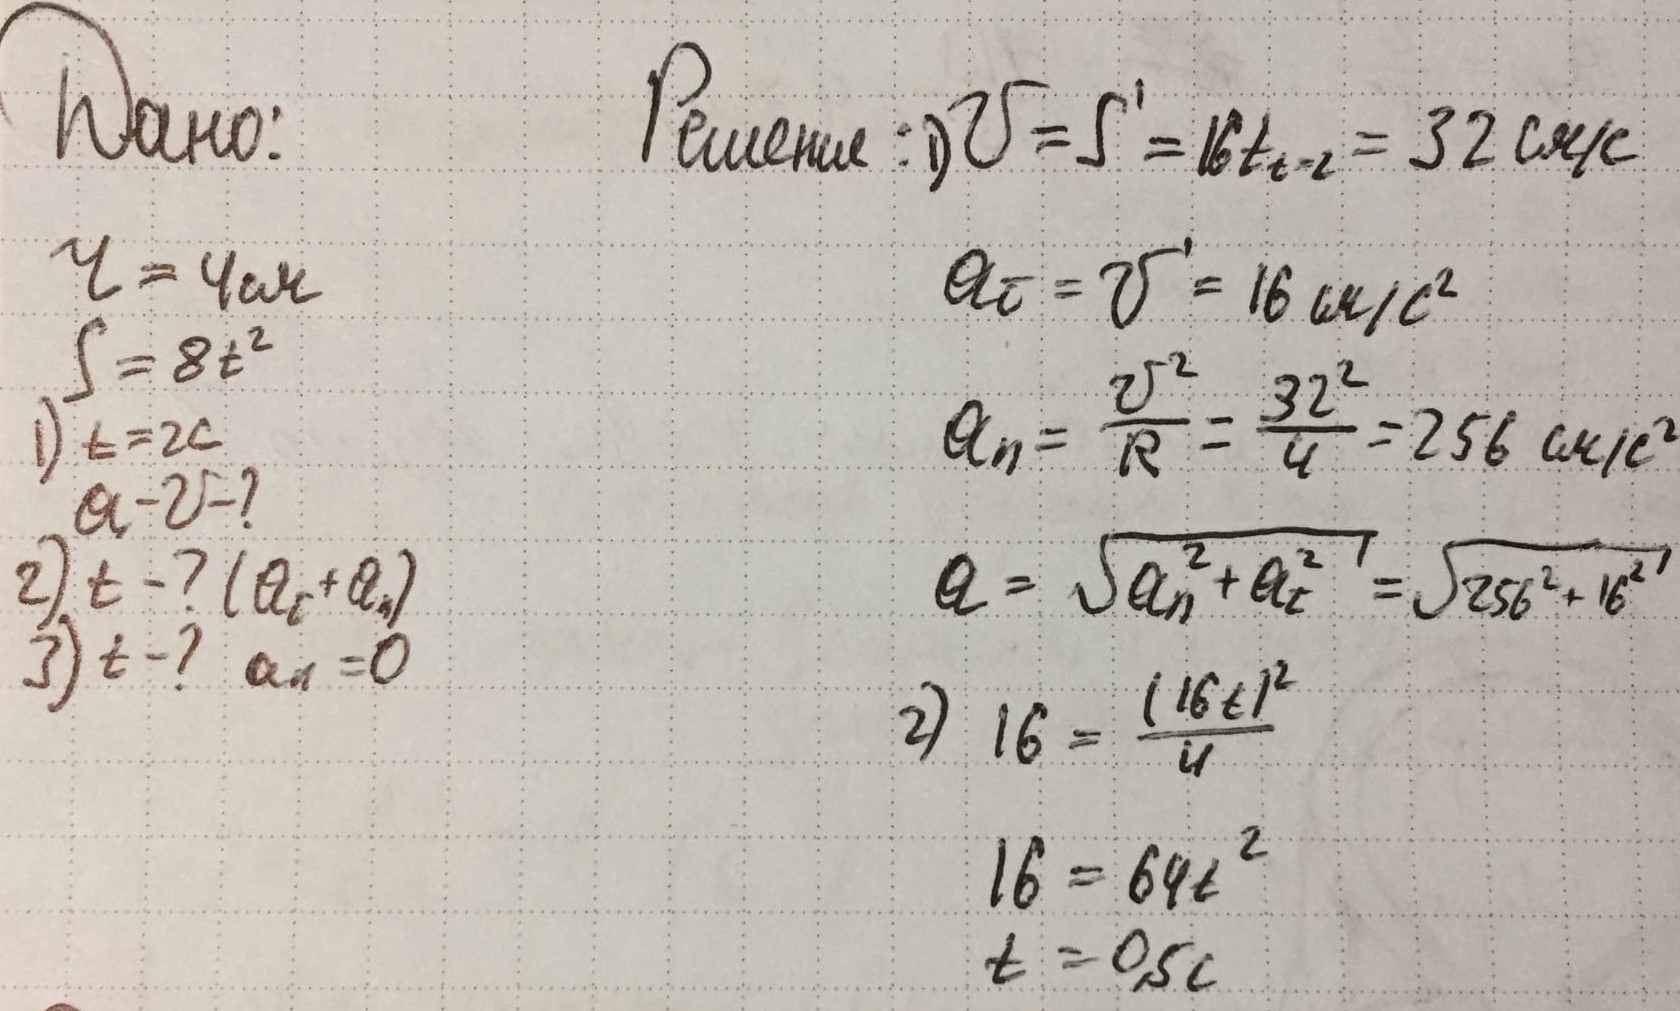 Дано:
r = 4см
S = 8t²
1) t = 2с
a - v - ?
2) t - ? (aτ + an)
3) t - ? an = 0
Решение: 1) v = S' = 16t t=2 = 32 см/с
aτ = v' = 16 см/с²
an = v²/R = 32²/4 = 256 см/с²
a = √(an² + aτ²) = √(256² + 16²)
2) 16 = (16t)²/4
16 = 64t²
t = 0,5с